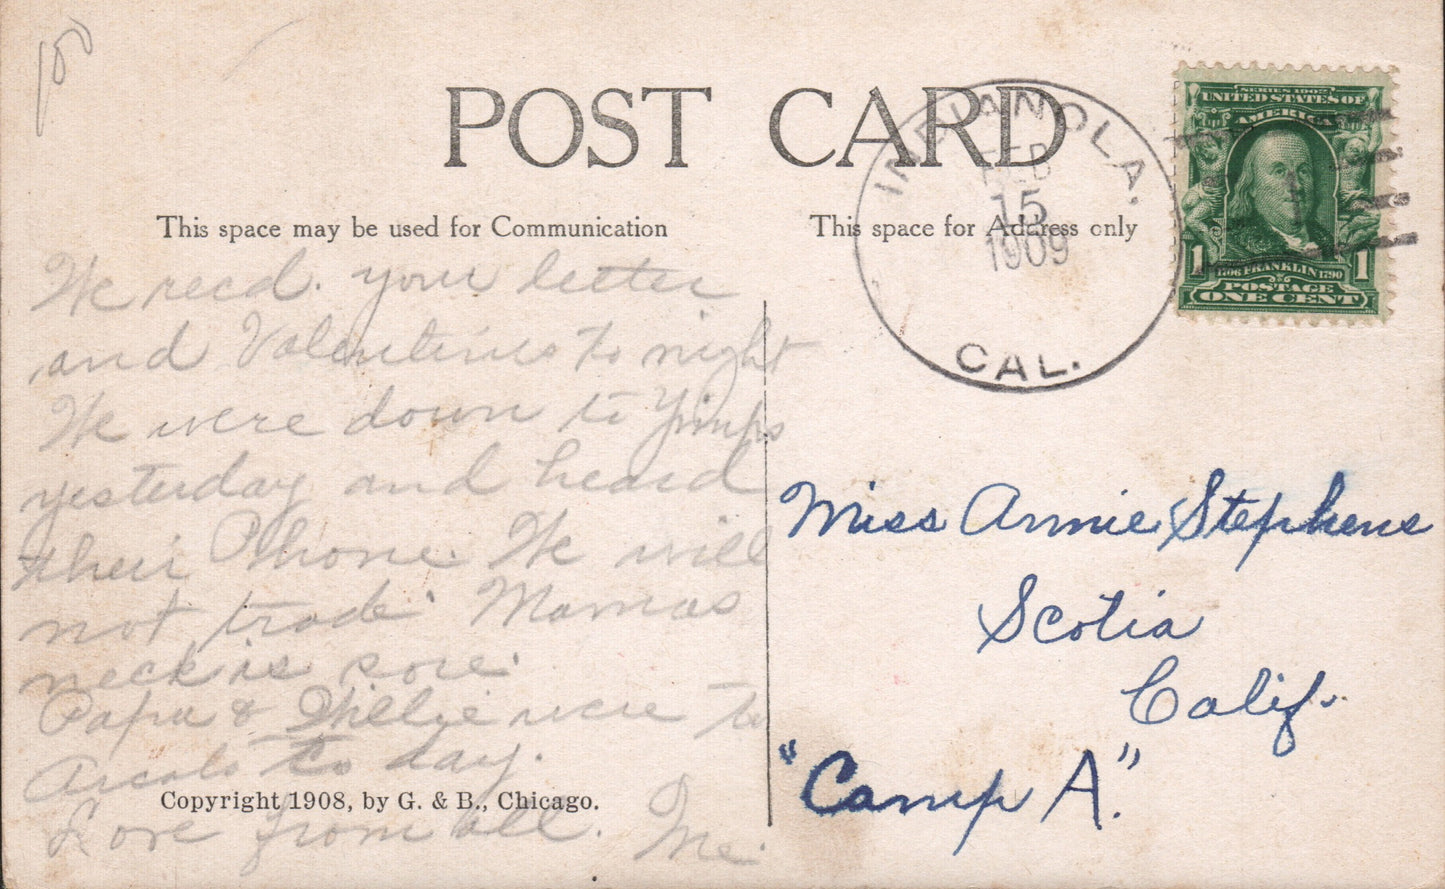 POST CARD
This space may be used for Communication
This space for Address only
INDIANOLA.
FEB
15
1909
CAL.
SERIES 1902
UNITED STATES OF
AMERICA
1706 FRANKLIN 1790
1 1
POSTAGE
ONE CENT
We recd. your letter
and Valentines to night
We were down to
yesterday and heard
their Phone. We will
not trade. Mamas
neck is sore.
Papa & Willie were to
to day.
Love from all. Me.
Copyright 1908, by G. & B., Chicago.
Miss Annie Stephens
Scotia
Calif.
"Camp A."